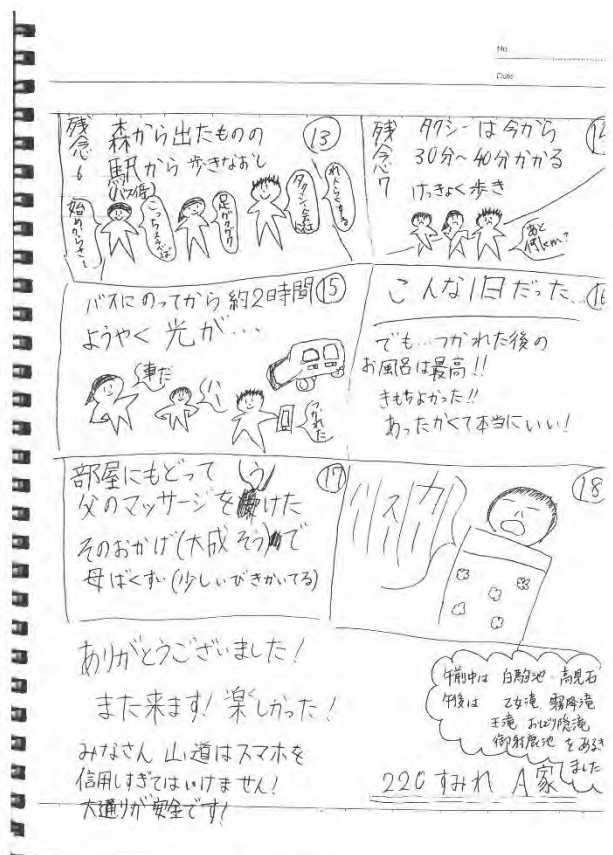 No.
Date
残念6
森から出たものの
駅から歩きなおし
(バス停)
13
始めからそ
こっちいえば
足がガクガク
タクシー会社
れんらくする
残念7
タクシーは今から
30分~40分かかる
けっきょく歩き
あと何km?
バスにのってから約2時間
15
ようやく光が…
車だ
つかれた
こんな1日だった…
16
でも…つかれた後の
お風呂は最高!!
きもちよかった!!
あったかくて本当にいい!
部屋にもどって
17
父のマッサージをうけた
そのおかげ(大成そう)で
母ばくすい(少しいびきかいてる)
18
ありがとうございました!
また来ます!楽しかった!
みなさん 山道はスマホを
信用しすぎてはいけません!
大通りが安全です!
午前中は 白駒池・高見石
午後は 乙女滝 霧降滝
王滝 おしどり隠滝
御射鹿池 をあるき
ました
220 すみれ A家